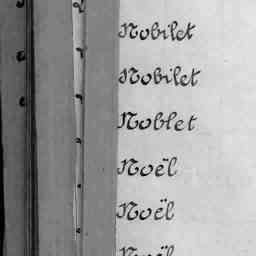 Nobilet
Nobilet
Noblet
Noël
Noël
Noël